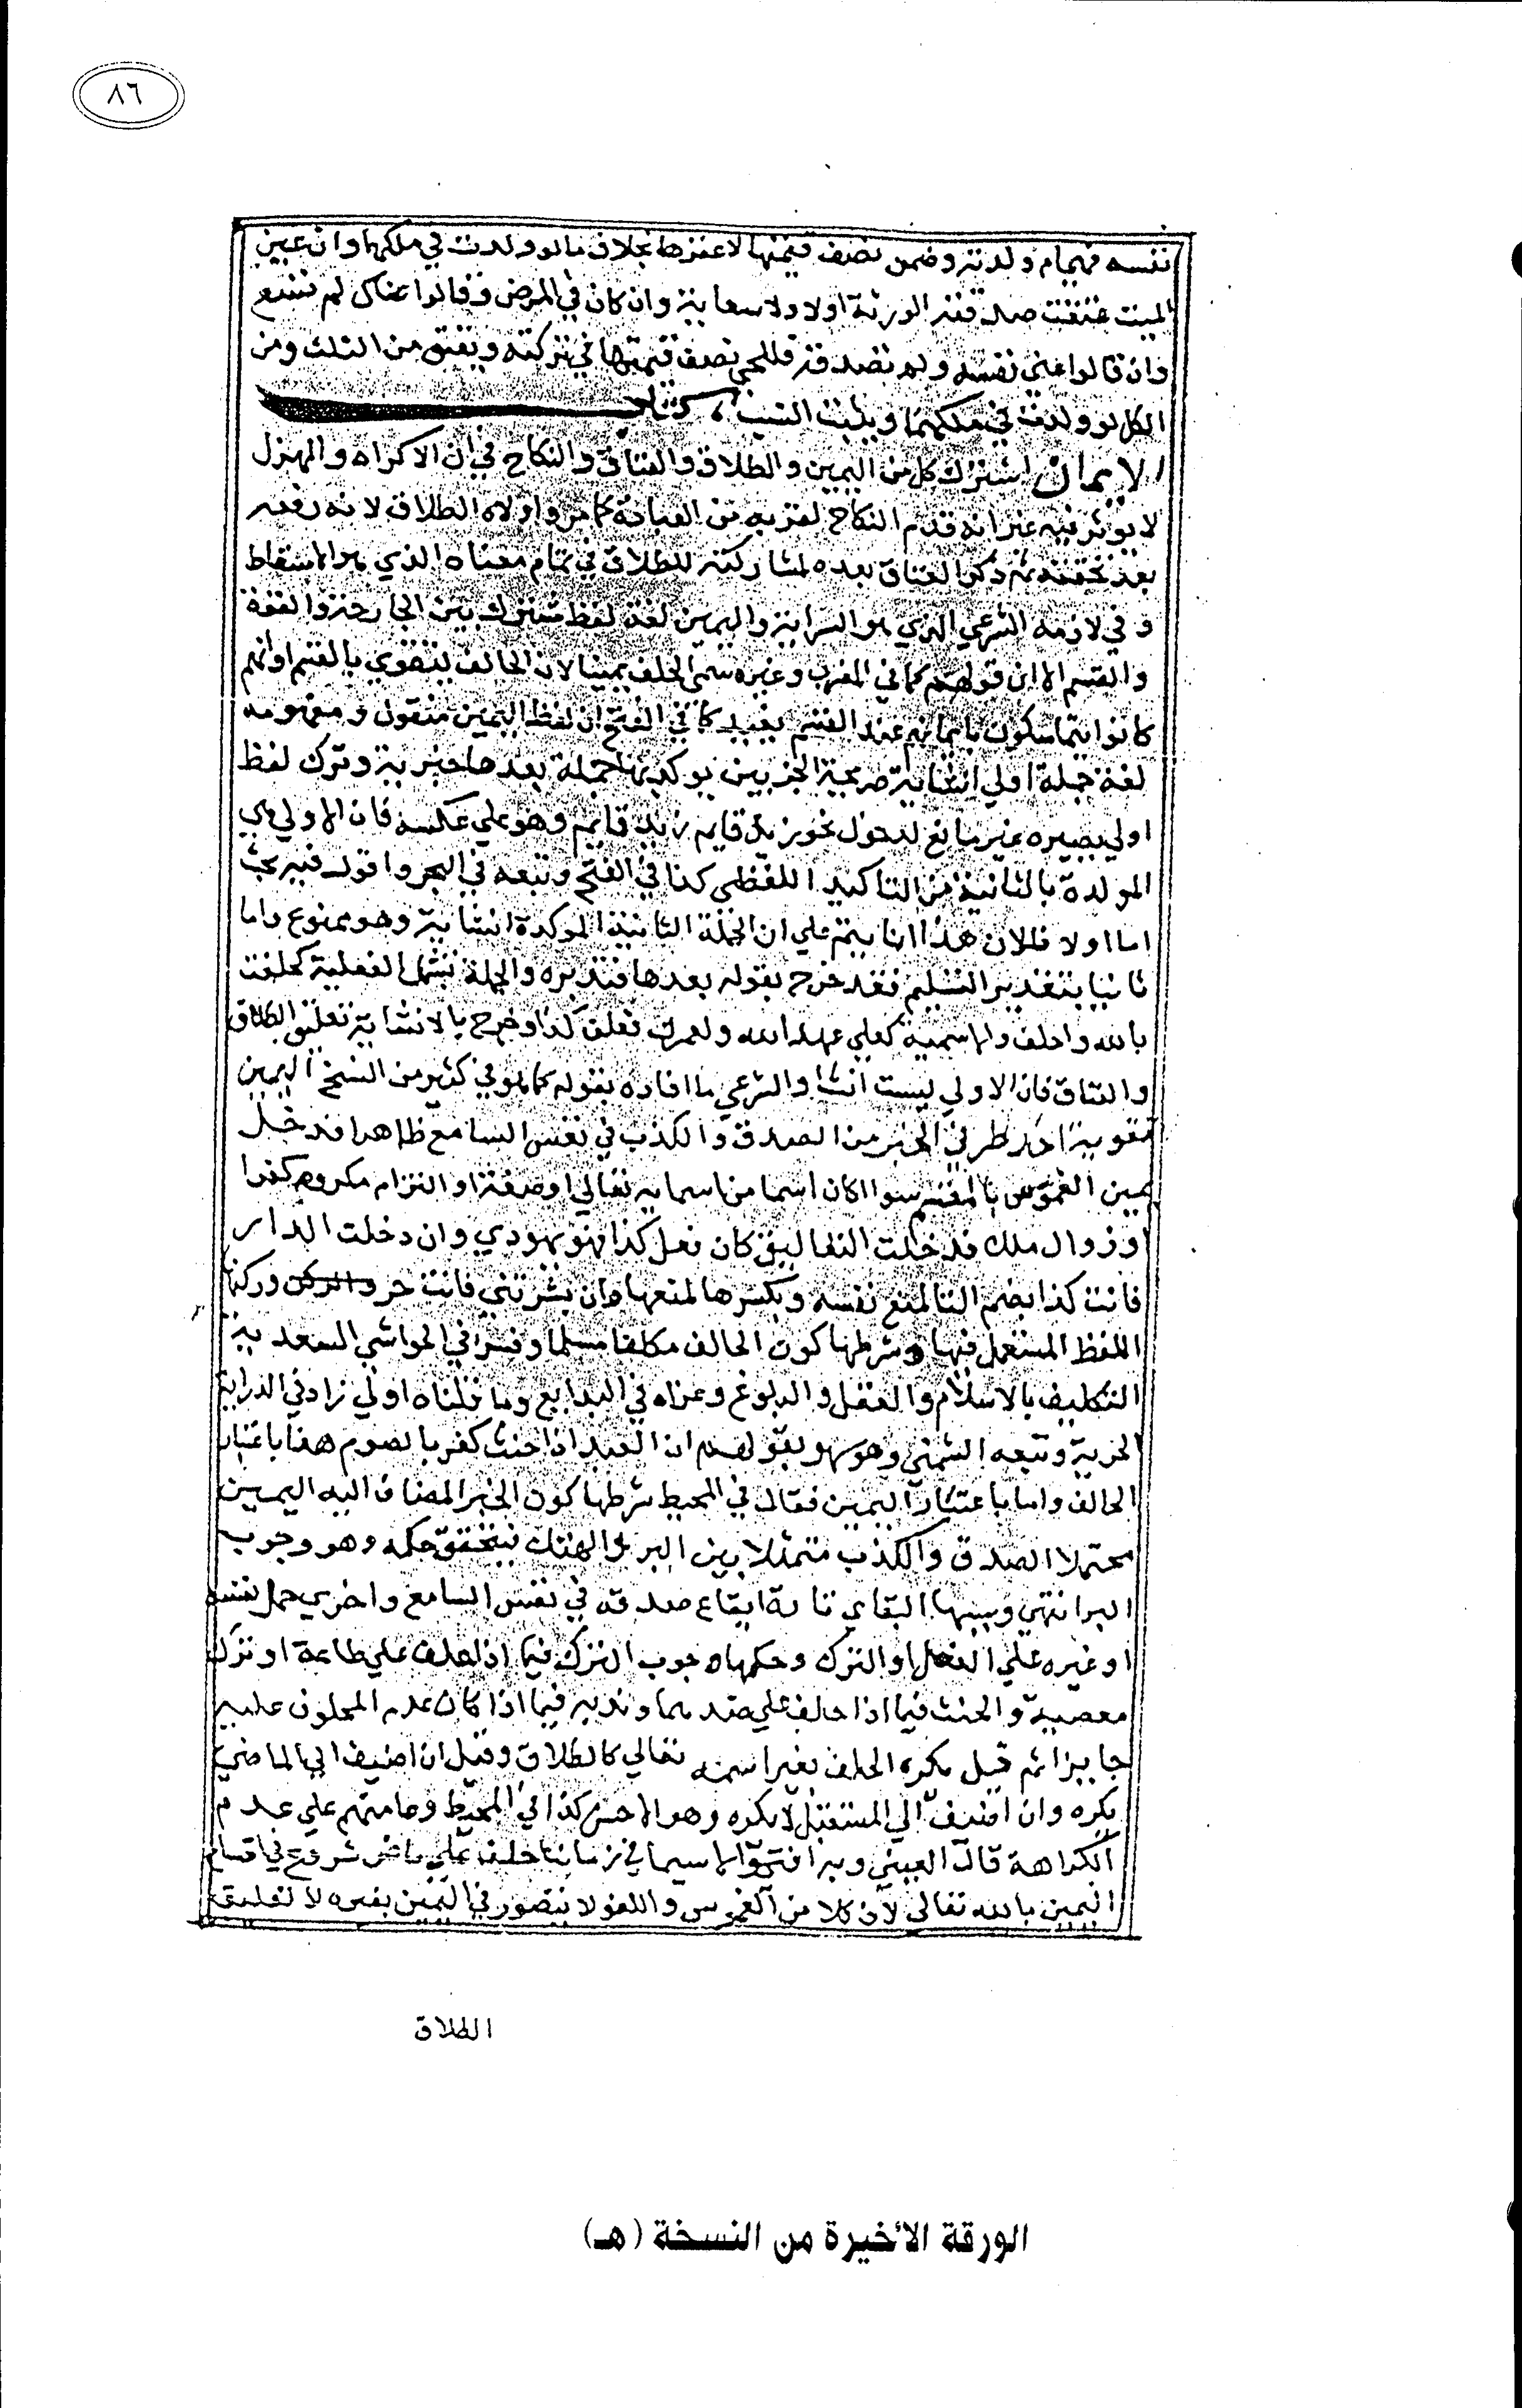 ٨٦
نفسه فهي ام ولدته وضمن نصف قيمتها لا عقرها بخلاف ما لو ولدت في ملكهما وان عين
الميت عتقت صدقته الورثة اولا ولا سعاية وان كان في المرض وقالوا عناك لم تسع
وان قالوا عني نفسه ولم تصدقه فللحي نصف قيمتها في تركته ويعتق من الثلث ومن
الكل لو ولدت في ملكهما ويثبت النسب كتاب
الايمان اشترك كل من اليمين والطلاق والعتاق والنكاح في ان الاكراه والهزل
لا يوثر فيه غير انه قدم النكاح لقربه من العبادة كما مر واولاه الطلاق لانه رفعه
بعد تحققه ثم ذكر العتاق بعده لمشاركته للطلاق في تمام معناه الذي هو الاسقاط
وفي لازمه الشرعي الذي هو السراية واليمين لغة لفظ مشترك بين الجارحة والقوة
والقسم الا ان قولهم كما في المغرب وغيره سمي الحلف يمينا لان الحالف يتقوي بالقسم او انهم
كانوا يتماسكون بايمانهم عند القسم يفيد كما في الفتح ان لفظ اليمين منقول ومفهومه
لغة جملة اولي انشائية صريحة الجزيين يوكد بها جملة بعدها خبرية وترك لفظ
اولي يصيره غير مانع لدخول نحو زيد قايم زيد قايم وهو علي عكسه فان الاولي هي
الموكدة بالثانية من التاكيد اللفظي كذا في الفتح وتبعه في البحر واقول فيه بحث
اما اولا فلان هذا انما يتم علي ان الجملة الثانية الموكدة انشايية وهو ممنوع واما
ثانيا بتقدير التسليم فقد خرج بقوله بعدها فتدبره والجملة تشمل الفعلية كحلفت
بالله واحلف والاسمية كعلي عهد الله ولعمرك نعلن كذا وخرج بالانشايية تعليق الطلاق
والعتاق فان الاولي ليست انشا والشرعي ما افاده بقوله كما هو في كثير من النسخ اليمين
تقوية احد طرفي الخبر من الصدق والكذب في نفس السامع ظاهرا فدخل
يمين الغموس بالمقسم سوا كان اسما من اسمايه تعالي او صفة او التزام مكروه كفرا
او زوال ملك فدخلت التعاليق كان فعل كذا فهو يهودي وان دخلت الدار
فانت كذا بضم التا لمنع نفسه وبكسرها لمنعها وان بشرتني فانت حر وركنها
اللفظ المستعمل فيها وشرطها كون الحالف مكلفا مسلما وفسر في الحواشي السعدية
التكليف بالاسلام والعقل والبلوغ وعزاه في البدايع وما قلناه اولي زاد في الدراية
الحرية وتبعه الشمني وهو سهو بقولهم ان العبد اذا حنث كفر بالصوم هذا باعتبار
الحالف واما باعتبار اليمين فقال في المحيط شرطها كون الخبر المضاف اليه اليمين
محتملا الصدق والكذب متمثلا بين البر والهتك فيتحقق حكمه وهو وجوب
البر انتهي وسببها البقاي تارة ايقاع صدقه في نفس السامع واخري حمل نفسه
او غيره علي الفعل او الترك وحكمها وجوب الترك فيما اذا حلف علي طاعة او ترك
معصية والحنث فيما اذا حلف علي ضدهما وندبه فيما اذا كان عدم المحلوف عليه
جايزا ثم قيل يكره الحلف بغير اسمه تعالي كالطلاق وقيل ان اضيف الي الماضي
يكره وان اضيف الي المستقبل لا يكره وهو الاحسن كذا في المحيط وعامتهم علي عدم
الكراهة قال العيني وبه افتوا لا سيما في زماننا حلف علي ماض شروع في اقسام
اليمين بالله تعالي لان كلا من الغموس واللغو لا يتصور في اليمين بغيره لا لتعليق
الطلاق
الورقة الأخيرة من النسخة (هـ)